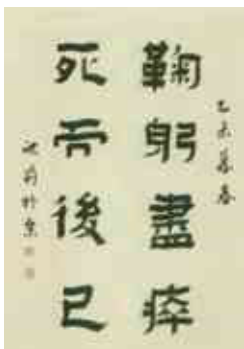 乙未暮春
鞠躬盡瘁
死而後已
於京